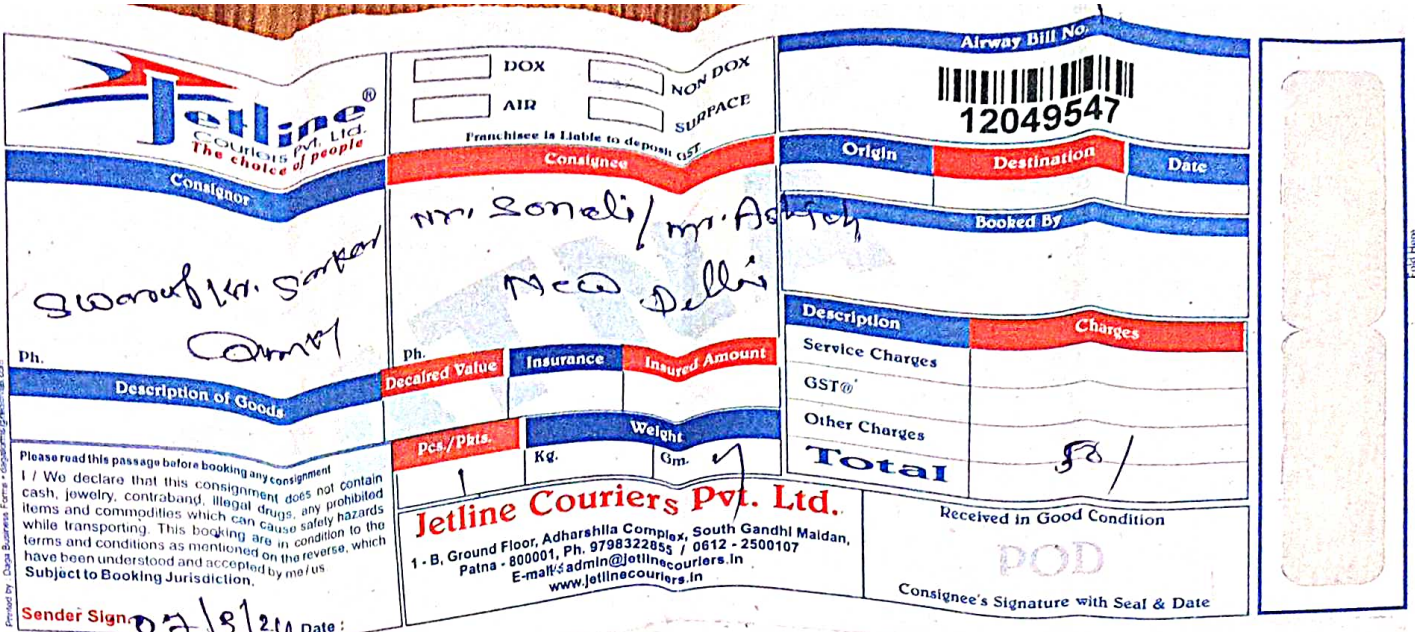 Jetline®
Couriers Pvt. Ltd.
The choice of people
DOX
NON DOX
AIR
SURFACE
Franchisee is Liable to deposit GST.
Airway Bill No.
12049547
Origin
Destination
Date
Consignor
Swarup Kr. Sarkar
Ph.
Consignee
Mr. Sonali / Mr. Ashish
New Delhi
Ph.
Booked By
Description of Goods
Decalred Value
Insurance
Insured Amount
Pcs./Pkts.
1
Weight
Kg.
Gm.
Description
Charges
Service Charges
GST@
Other Charges
Total
50/
Please read this passage before booking any consignment
I / We declare that this consignment does not contain
cash, jewelry, contraband, illegal drugs, any prohibited
items and commodities which can cause safety hazards
while transporting. This booking are in condition to the
terms and conditions as mentioned on the reverse, which
have been understood and accepted by me/us
Subject to Booking Jurisdiction.
Sender Sign.
Date :
Jetline Couriers Pvt. Ltd.
1 - B, Ground Floor, Adharshila Complex, South Gandhi Maidan,
Patna - 800001, Ph. 9798322855 / 0612 - 2500107
E-mail: admin@jetlinecouriers.in
www.jetlinecouriers.in
Received in Good Condition
POD
Consignee's Signature with Seal & Date
Fold Here